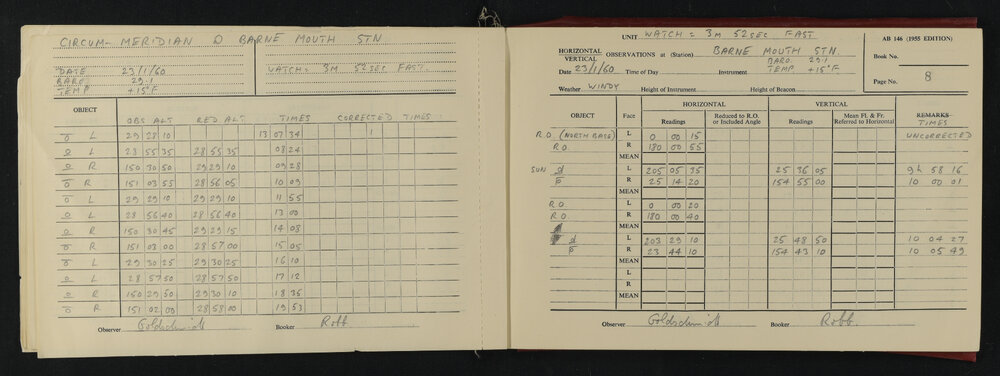 CIRCUM- MERIDIAN @ BARNE MOUTH STN
DATE 23/1/60 WATCH = 3M 52SEC FAST.
BARO 29.1
TEMP +15°F
OBJECT
OBS ALT RED ALT TIMES CORRECTED TIMES
L 29 28 10 13 07 34
L 28 55 35 28 55 35 08 24
R 150 30 50 29 29 10 09 28
R 151 03 55 28 56 05 10 09
L 29 29 10 29 29 10 11 55
L 28 56 40 28 56 40 13 00
R 150 30 45 29 29 15 14 08
R 151 03 00 28 57 00 15 05
L 29 30 25 29 30 25 16 10
L 28 57 50 28 57 50 17 12
R 150 29 50 29 30 10 18 35
R 151 02 00 28 58 00 19 53
Observer Goldschmidt Booker Robb
UNIT WATCH = 3M 52 SEC FAST AB 146 (1955 EDITION)
HORIZONTAL
VERTICAL OBSERVATIONS at (Station) BARNE MOUTH STN. Book No.
BARO 29.1
Date 23/1/60 Time of Day Instrument TEMP +15°F
Page No. 8
Weather WINDY Height of Instrument Height of Beacon
HORIZONTAL VERTICAL
OBJECT Face Readings Reduced to R.O. or Included Angle Readings Mean Fl. & Fr. Referred to Horizontal REMARKS
TIMES
R.O. (NORTH BASE) L 0 00 15 UNCORRECTED
R.O. R 180 00 55
MEAN
SUN L 205 05 35 25 36 05 9h 58 16
R 25 14 20 154 55 00 10 00 01
MEAN
R.O L 0 00 20
R.O R 180 00 40
MEAN
L 203 29 10 25 48 50 10 04 27
R 23 44 10 154 43 10 10 05 49
MEAN
L
R
MEAN
Observer Goldschmidt Booker Robb.